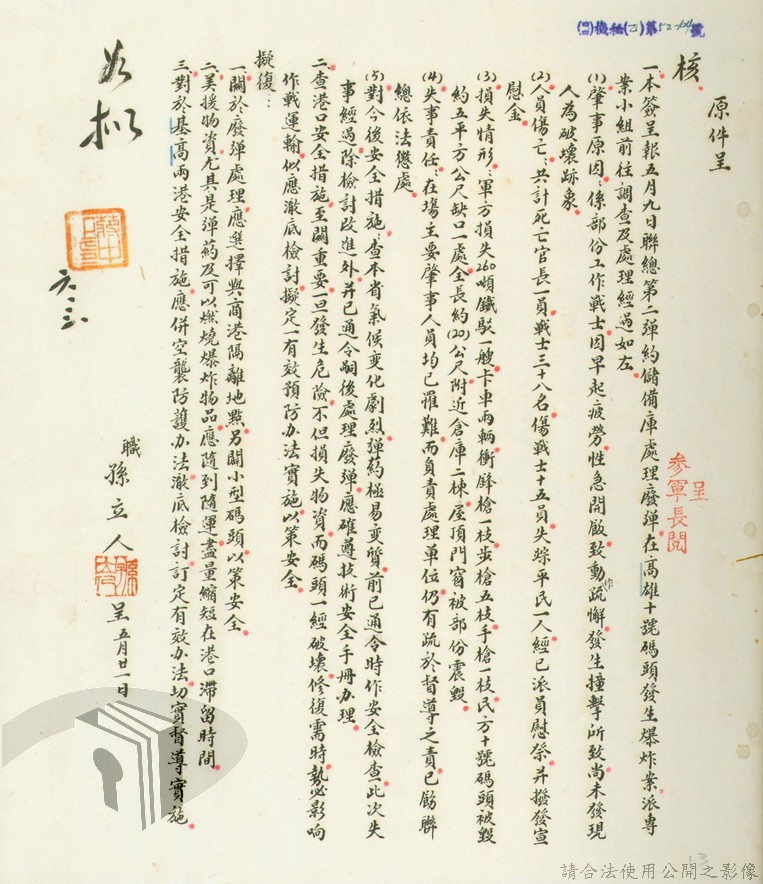 (四)機秘(乙)第52-
號
原件呈
核
呈
參軍長閱
一、本簽呈報五月九日聯總第二彈約儲備庫處理廢彈在高雄十號碼頭發生爆炸案派專
案小組前往調查及處理經過如左
(1)肇事原因:係部份工作戰士因早起疲勞性急開啟致動作疏懈發生撞擊所致尚未發現
人為破壞跡象
(2)人員傷亡:共計死亡官長一員戰士三十八名傷戰士十五員失踪平民一人經已派員慰祭并撥發宣
慰金
(3)損失情形:軍方損失260噸鐵駁一艘卡車兩輛衝鋒槍一枝步槍五枝手槍一枝民方十號碼頭被毀
約五平方公尺缺口一處全長約(20)公尺附近倉庫二棟屋頂門窗被部份震毀
(4)失事責任:在場主要肇事人員均已罹難而負責處理單位仍有疏於督導之責已飭聯
總依法懲處
(5)對今後安全措施查本省氣候变化劇烈彈約極易变質前已通令時作安全檢查此次失
事經過除檢討改進外并已通令嗣後處理廢彈應確遵技術安全手冊办理
二、查港口安全措施至關重要一旦發生危險不但損失物資而碼頭一經破壞修復需時勢必影响
作戰運輸似應澈底檢討擬定一有效預防办法實施以策安全
擬復:
一、關於廢彈處理應選擇與商港隔離地點另闢小型碼頭以策安全
二、美援物資尤具是彈葯及可以燃燒爆炸物品應隨到隨運盡量縮短在港口滯留時間
三、對於基高兩港安全措施應併空襲防護办法澈底檢討訂定有效办法切實督導實施
職
孫立人
呈
五月廿一日
如擬
蔣中正印
六.三.
請合法使用公開之影像